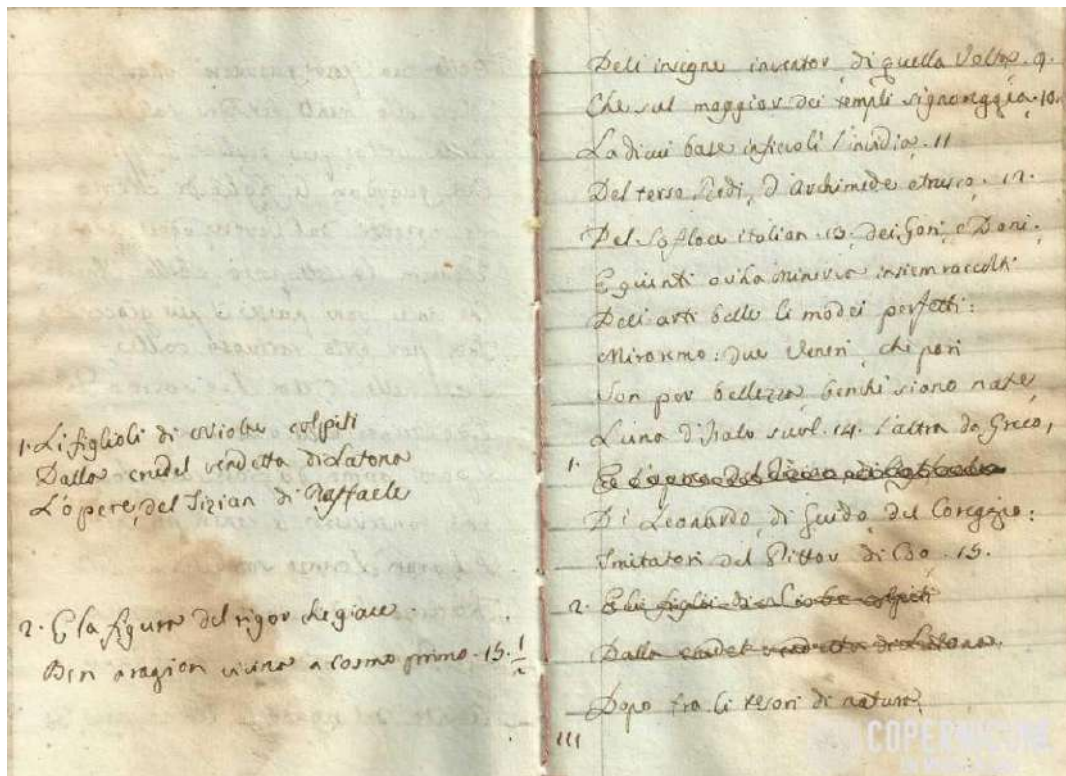 1. Li figlioli di Niobe colpiti
Dalla crudel vendetta di Latona
L'opere, del Tizian di Raffaele
2. E la figura del rigor che giace
Ben aragion vicina a Cosmo primo. 15. 1/2
Deli insigne inventor, di quella Volta. 9.
Che sul maggior dei templi signoreggia. 10.
La di cui base inficioli l'inidia. 11
Del terso Redi, d'Archimede etrusco. 12.
Del Sofloce italian. 13. dei Gori, e Doni.
E quinti ov'ha Minerva insiem raccolti
Deli arti belle li modei perfetti:
Miraremo: due Veneri, che pari
Son per bellezza, benche siano nate
L'una d'Italo suol. 14. l'altra da Greco,
1.
Di Leonardo, di Guido, del Coreggio:
Imitatori del Pittor di Coo. 15.
2. E li figli di Niobe colpiti
Dalla crudel vendetta di Latona.
Dopo fra li tesori di natura,
111
COPERNICUM